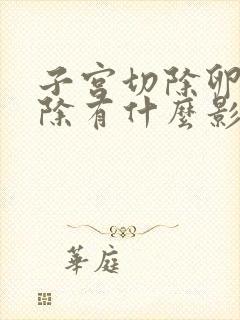 子宮切除卵
除有什麼影
華庭